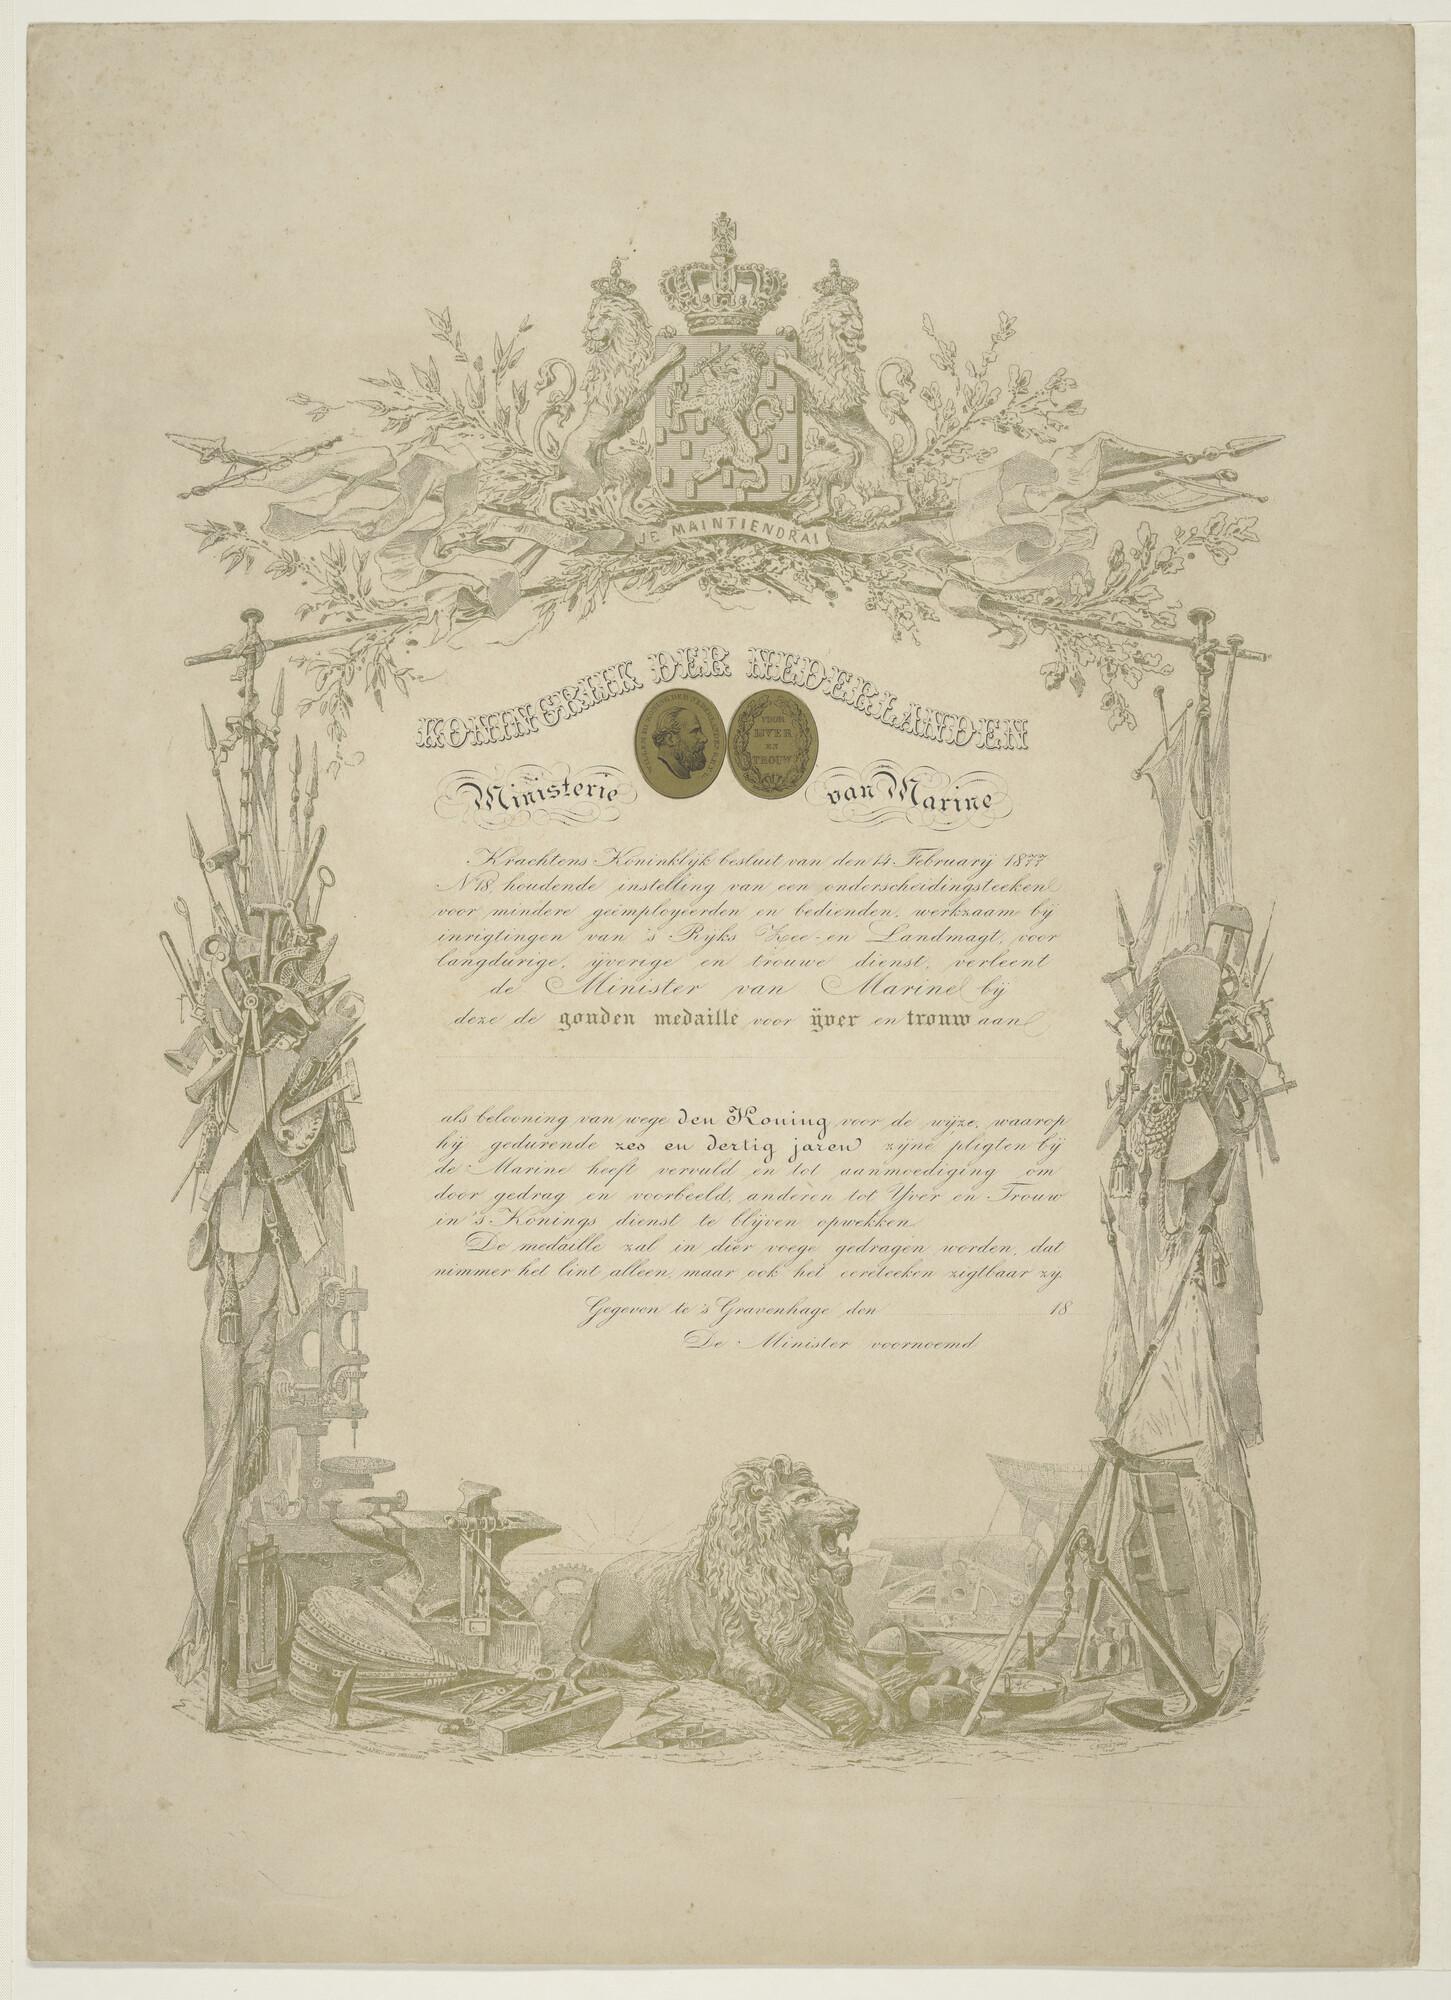 JE MAINTIENDRAI
KONINGRIJK DER NEDERLANDEN
VOOR
IJVER
EN
TROUW
Ministerie van Marine
Krachtens Koninklijk besluit van den 14 February 1877
No 18, houdende instelling van een onderscheidingsteeken
voor mindere geëmployeerden en bedienden, werkzaam bij
inrigtingen van 's Rijks Zee- en Landmagt, voor
langdurige, ijverige en trouwe dienst, verleent
de Minister van Marine bij
deze de gouden medaille voor ijver en trouw aan
als belooning van wege den Koning voor de wijze, waarop
hij gedurende zes en dertig jaren zijne pligten bij
de Marine heeft vervuld en tot aanmoediging om
door gedrag en voorbeeld, anderen tot Yver en Trouw
in 's Konings dienst te blijven opwekken.
De medaille zal in dier voege gedragen worden, dat
nimmer het lint alleen, maar ook het eereteeken zigtbaar zy.
Gegeven te 's Gravenhage den 18
De Minister voornoemd